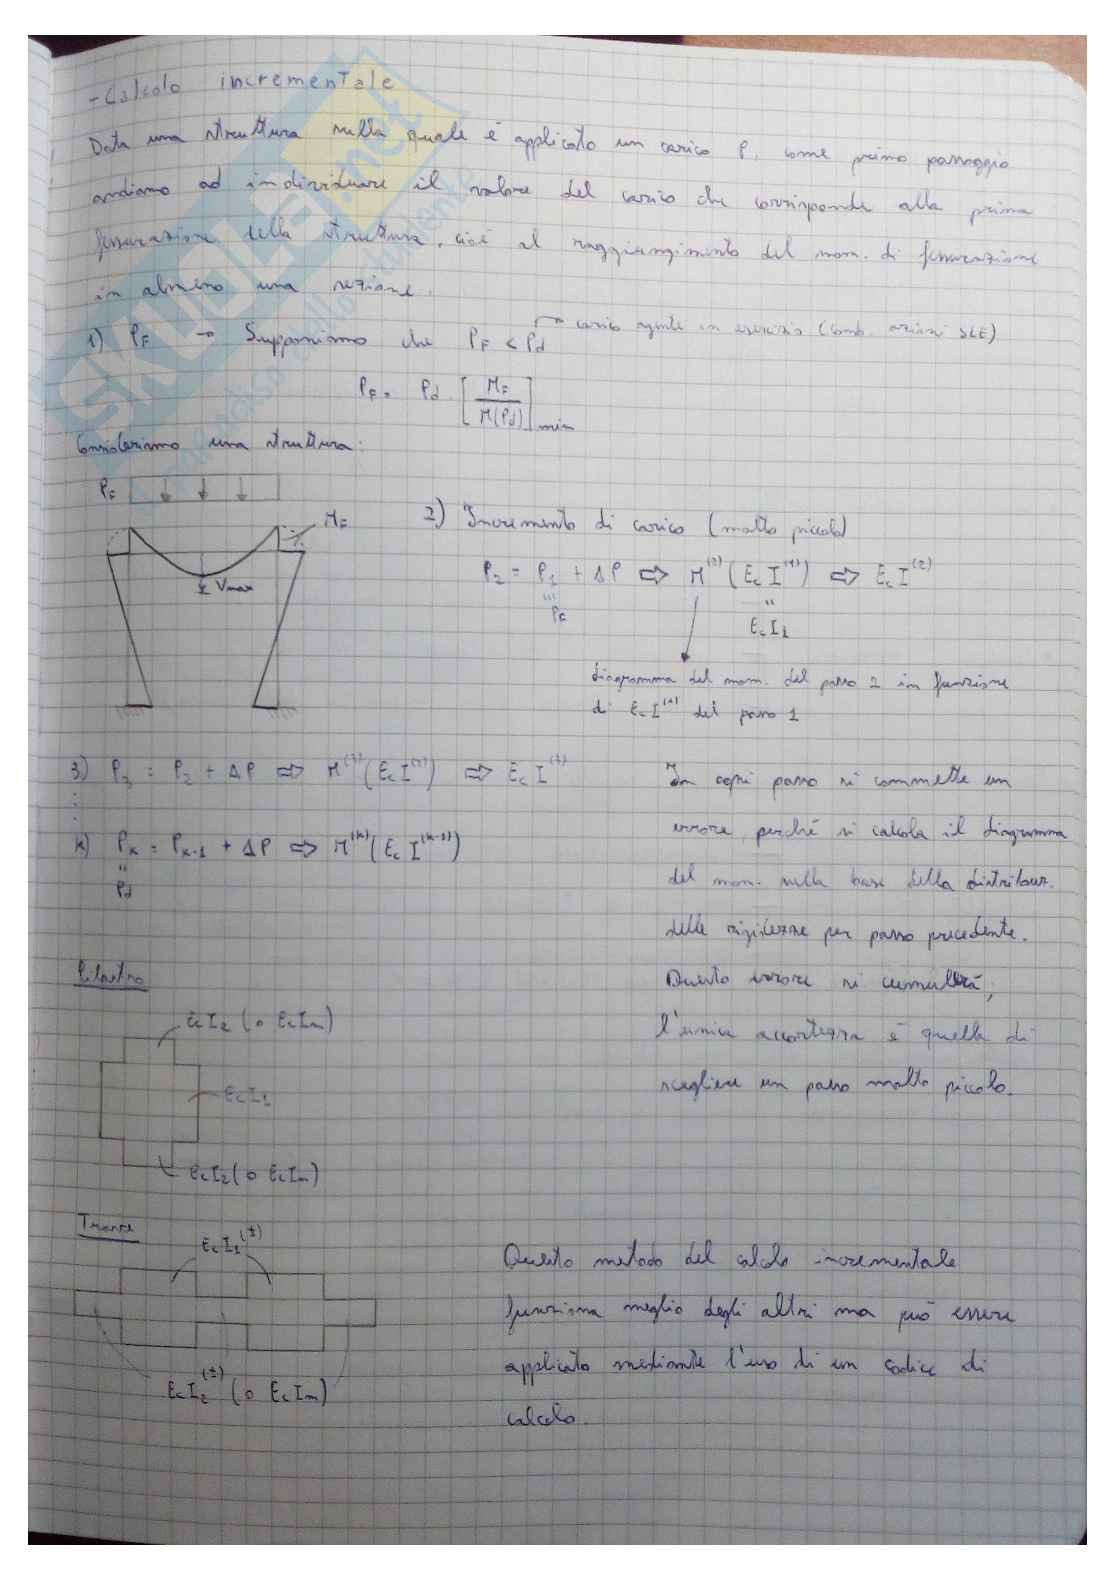 - Calcolo incrementale
Data una struttura sulla quale è applicato un carico P, come primo passaggio
andiamo ad individuare il valore del carico che corrisponde alla prima
fessurazione della struttura, cioè al raggiungimento del mom. di fessurazione
in almeno una sezione.
1) PF → Supponiamo che PF < Pd → carico agente in esercizio (Comb. azioni SLE)
PF = Pd · [MF / M(Pd)]min
Consideriamo una struttura:
PF
MF
Vmax
2) Incremento di carico (molto piccolo)
P2 = P1 + ΔP ⇒ M(2) (Ec I(1)) ⇒ Ec I(2)
PF
Ec I1
diagramma del mom. del passo 2 in funzione
di Ec I(1) del passo 1
3) P3 = P2 + ΔP ⇒ M(3) (Ec I(2)) ⇒ Ec I(3)
k) Pk = Pk-1 + ΔP ⇒ M(k) (Ec I(k-1))
Pd
In ogni passo si commette un
errore, perché si calcola il diagramma
del mom. sulla base della distribuz.
delle rigidezze per passo precedente.
Questo errore si cumulerà;
l'unica accortezza è quella di
scegliere un passo molto piccolo.
Pilastro
Ec I2 (o Ec Im)
Ec I1
Ec I2 (o Ec Im)
Trave
Ec I1(±)
Ec I2(±) (o Ec Im)
Questo metodo del calcolo incrementale
funziona meglio degli altri ma può essere
applicato mediante l'uso di un codice di
calcolo.
SKUOLA.net